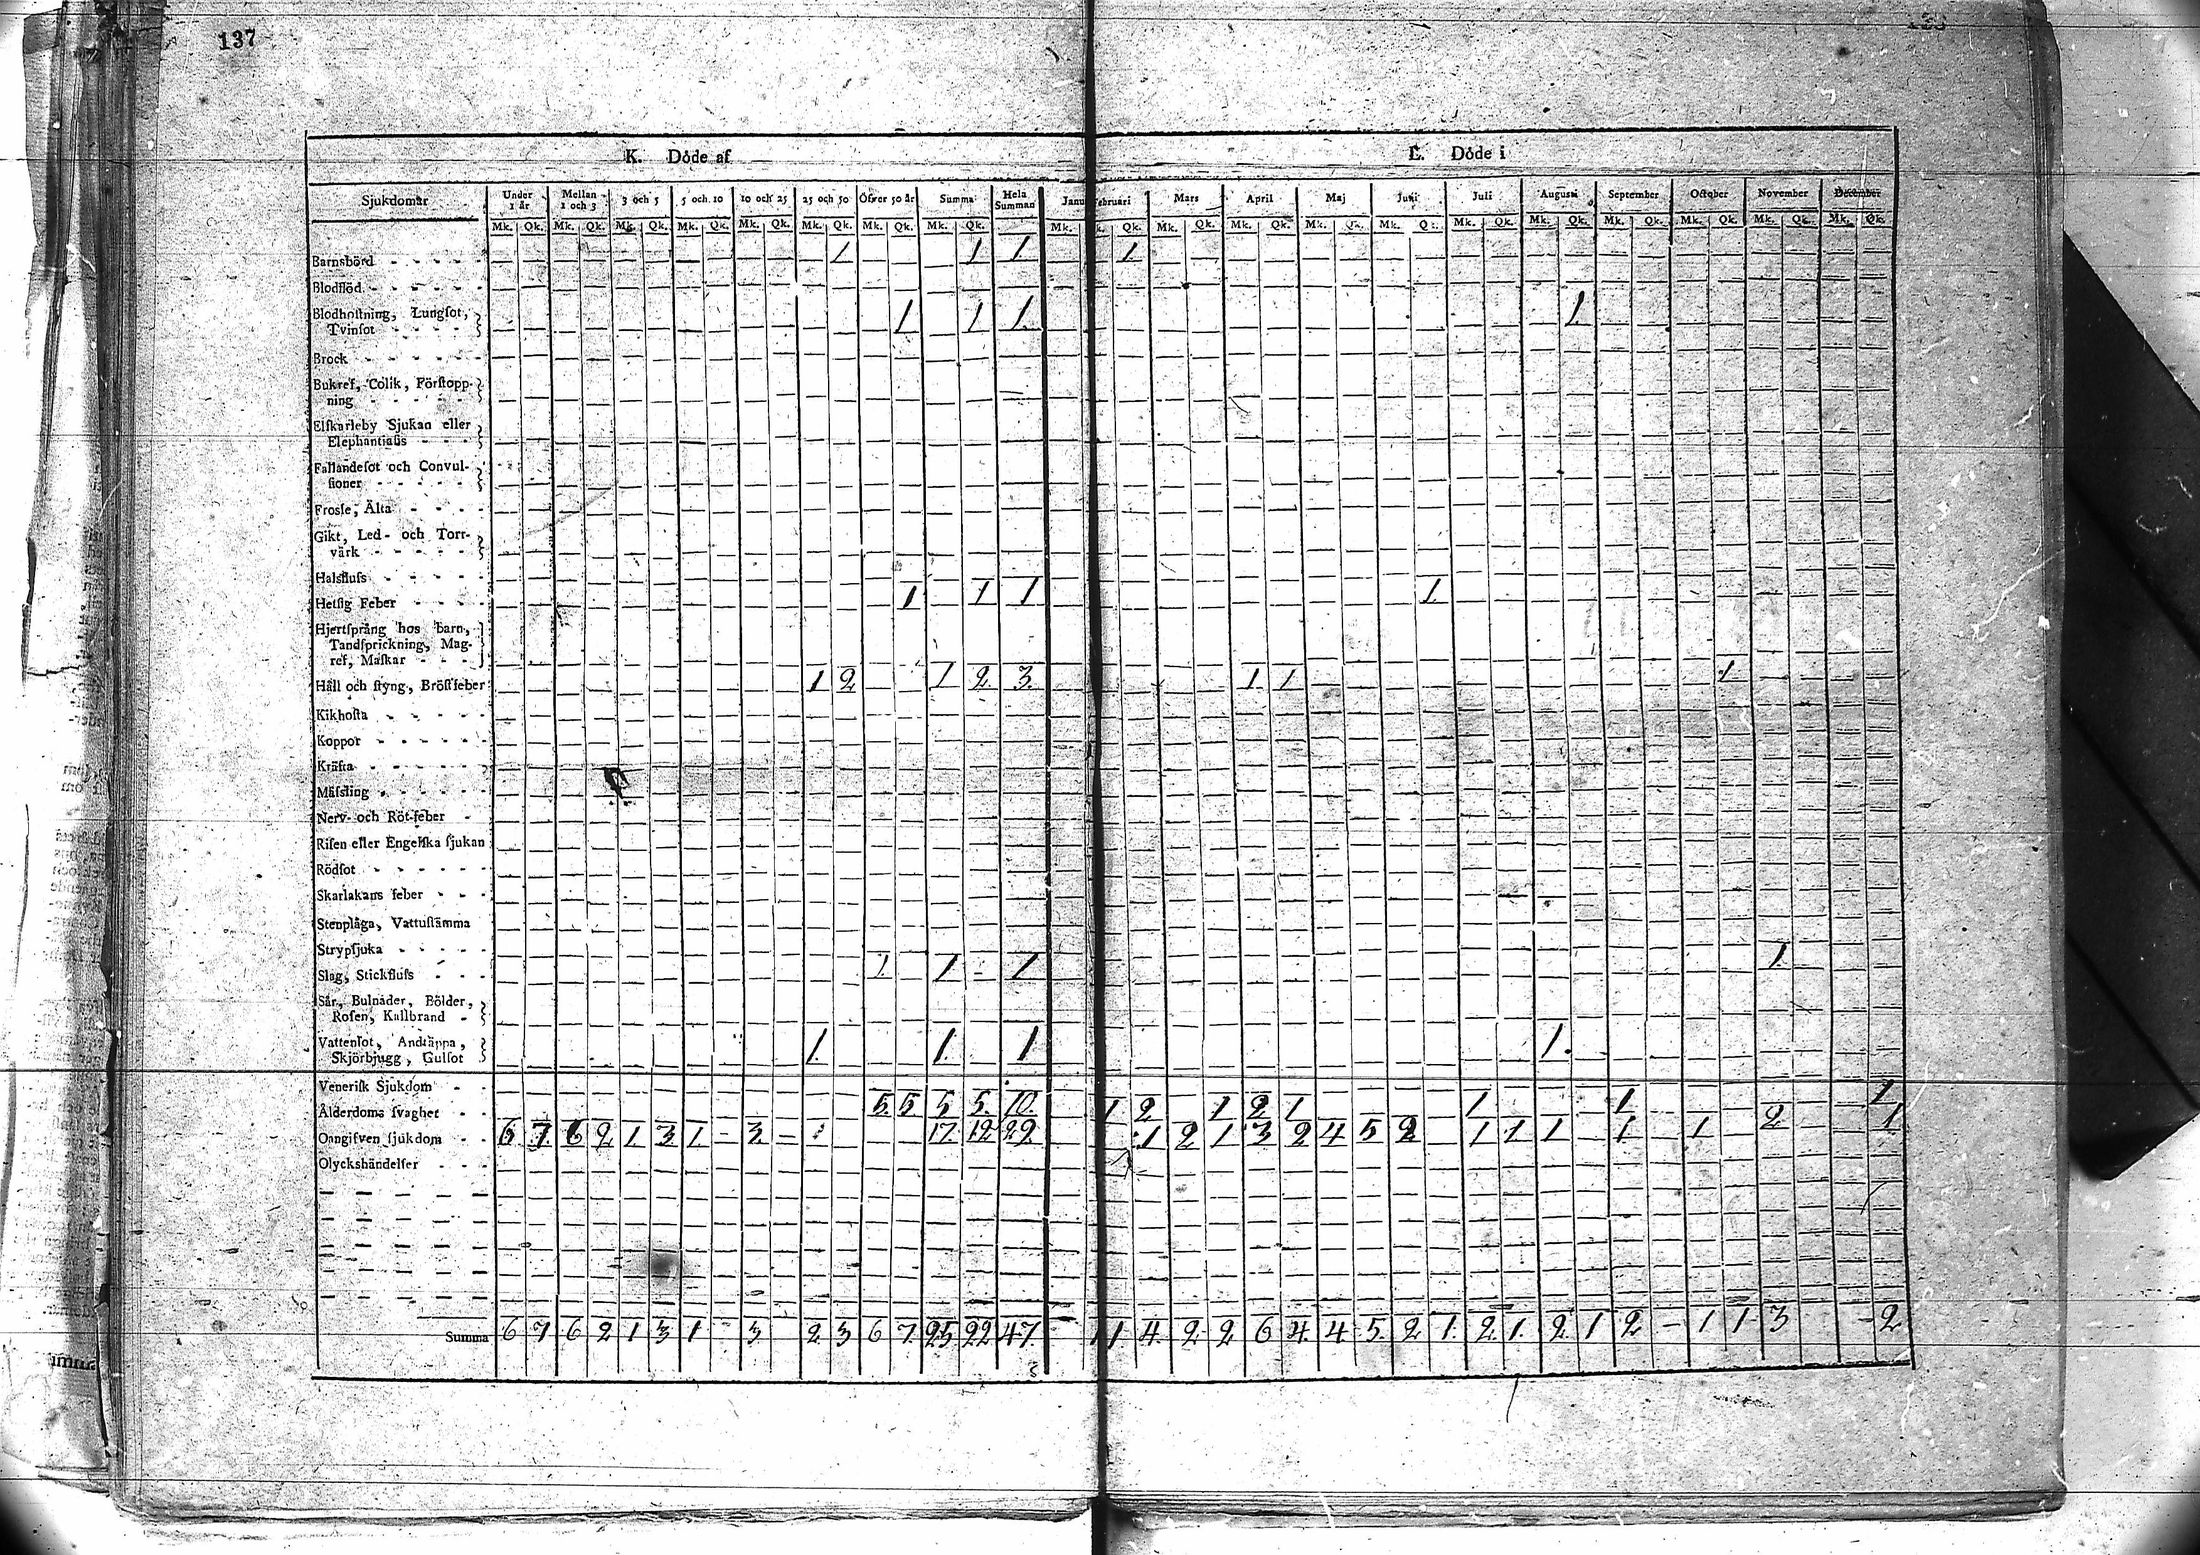 137
K. Döde af
E. Döde i
Sjukdomar Under 1 år Mellan 1 och 3 3 och 5 5 och 10 10 och 25 25 och 50 Öfver 50 år Summa Hela Summan Februari Mars April Maj Juni Juli Augusti September October November December
Mk. Qk. Mk. Qk. Mk. Qk. Mk. Qk. Mk. Qk. Mk. Qk. Mk. Qk. Mk. Qk. Mk. Qk. Mk. Qk. Mk. Qk. Mk. Qk. Mk. Qk. Mk. Qk. Mk. Qk. Mk. Qk. Mk. Qk. Mk. Qk. Mk. Qk.
Barnsbörd 1 1 1 1
Blodflöd
Blodhoſtning, Lungſot,
Tvinſot 1 1 1 1
Brock
Bukref, Colik, Förſtopp-
ning
Elſkarleby Sjukan eller
Elephantiaſis
Fallandeſot och Convul-
ſioner
Froſſe, Älta
Gikt, Led- och Torr-
värk
Halsfluſs
Hetſig Feber 1 1 1 1
Hjertſprång hos barn,
Tandſprickning, Mag-
ref, Maſkar
Håll och ſtyng, Bröſtfeber 1 2 1 2 3 1 1 1
Kikhoſta
Koppor
Kräfta
Mäſsling
Nerv- och Röt-feber
Riſen eller Engelſka ſjukan
Rödſot
Skarlakans feber
Stenplåga, Vattuſtämma
Strypſjuka
Slag, Stickfluſs 1 1 - 1 1
Sår, Bulnader, Bölder,
Roſen, Kallbrand
Vattenſot, Andtäppa,
Skjörbjugg, Gulſot 1 1 1 1
Veneriſk Sjukdom
Ålderdoms ſvaghet 5 5 5 5 10 1 2 1 2 1 1 1 1
Oangifven ſjukdom 6 7 6 2 1 3 1 - 3 - 17 12 29 1 2 1 3 2 4 5 2 1 1 1 1 1 2 1
Olyckshändelſer
Summa 6 7 6 2 1 3 1 3 2 3 6 7 25 22 47 1 1 4 2 2 6 4 4 5 2 1 2 1 2 1 2 - 1 1 3 - 2